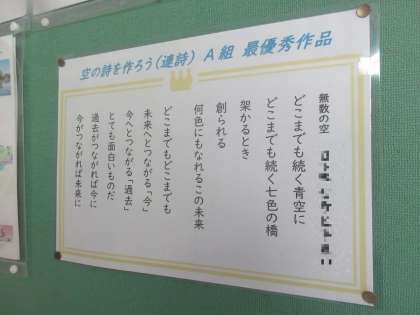 空の詩を作ろう(連詩) A組 最優秀作品
無数の空
どこまでも続く青空に
どこまでも続く七色の橋
架かるとき
創られる
何色にもなれるこの未来
どこまでもどこまでも
未来へとつながる「今」
今へとつながる「過去」
とても面白いものだ
過去がつながれば今に
今がつながれば未来に